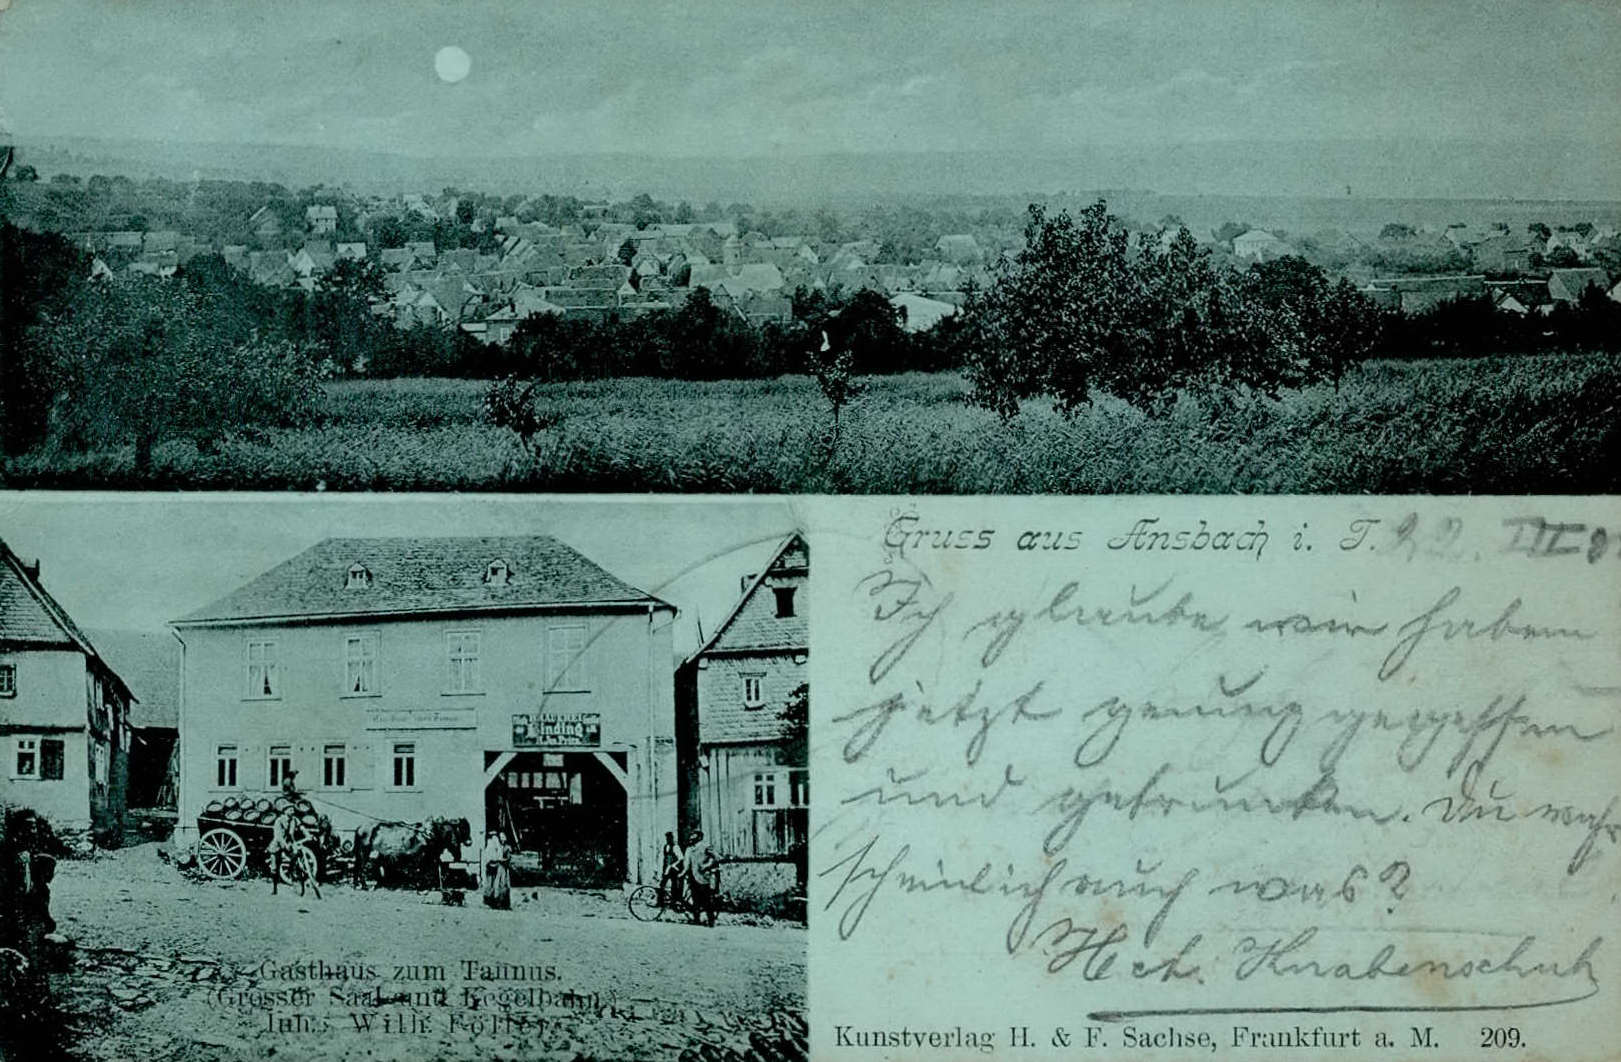 Gruss aus Ansbach i. T. 22. III 0
Ich glaube wir haben
jetzt genung gegessen
und getrunken. Du wahr
scheinlich auch was?
Hch. Knabenschuh
BRAUEREI
Binding
Gasthaus zum Taunus.
(Grosser Saal und Kegelbahn.)
Inh.: Wilh. Foller
Kunstverlag H. & F. Sachse, Frankfurt a. M. 209.